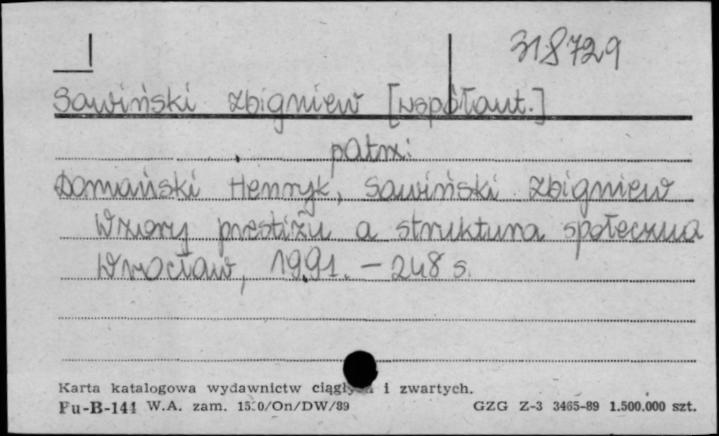 318729
Sawiński Zbigniew [współaut.]
patrz:
Domański Henryk, Sawiński Zbigniew
Wzory prestiżu a struktura społeczna
Wrocław, 1991. – 248 s.
Karta katalogowa wydawnictw ciągłych i zwartych.
Pu-B-144 W.A. zam. 1530/On/DW/89 GZG Z-3 3465-89 1.500.000 szt.